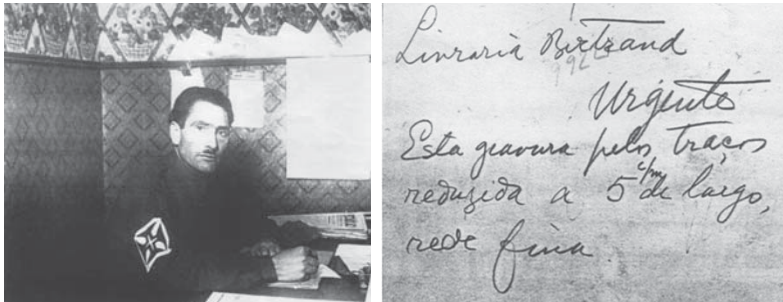 Livraria Bertrand
Urgente
Esta gravura pelos traços
reduzida a 5 c/m de largo,
rede fina